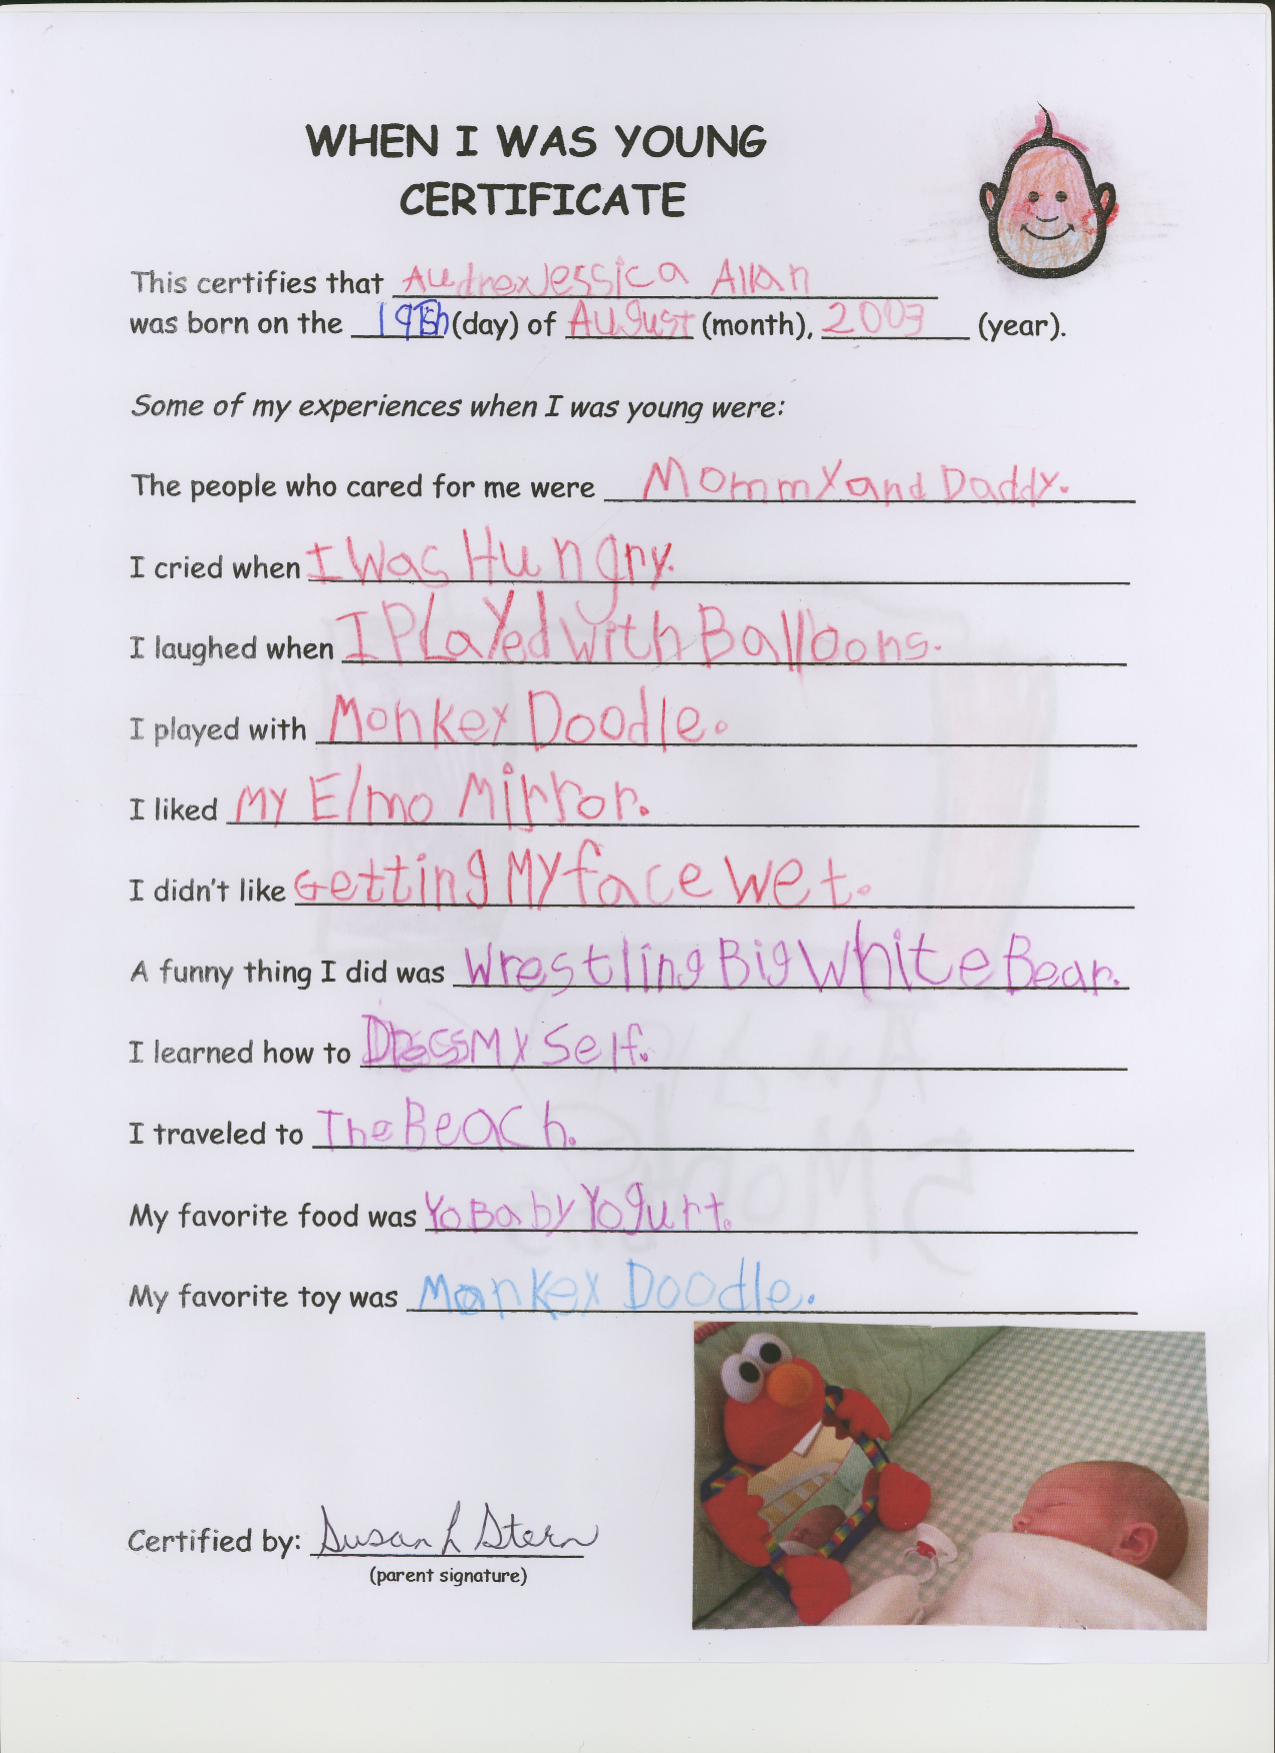 WHEN I WAS YOUNG
CERTIFICATE
This certifies that Audrey Jessica Allan
was born on the 19th (day) of August (month), 2003 (year).
Some of my experiences when I was young were:
The people who cared for me were Mommy and Daddy.
I cried when I Was Hungry.
I laughed when I PLayed with Balloons.
I played with Monkey Doodle.
I liked My Elmo Mirror.
I didn't like Getting My face wet.
A funny thing I did was Wrestling Big White Bear.
I learned how to Dress My Self.
I traveled to The Beach.
My favorite food was YoBaby Yogurt.
My favorite toy was Monkey Doodle.
Certified by: Susan L Stern
(parent signature)